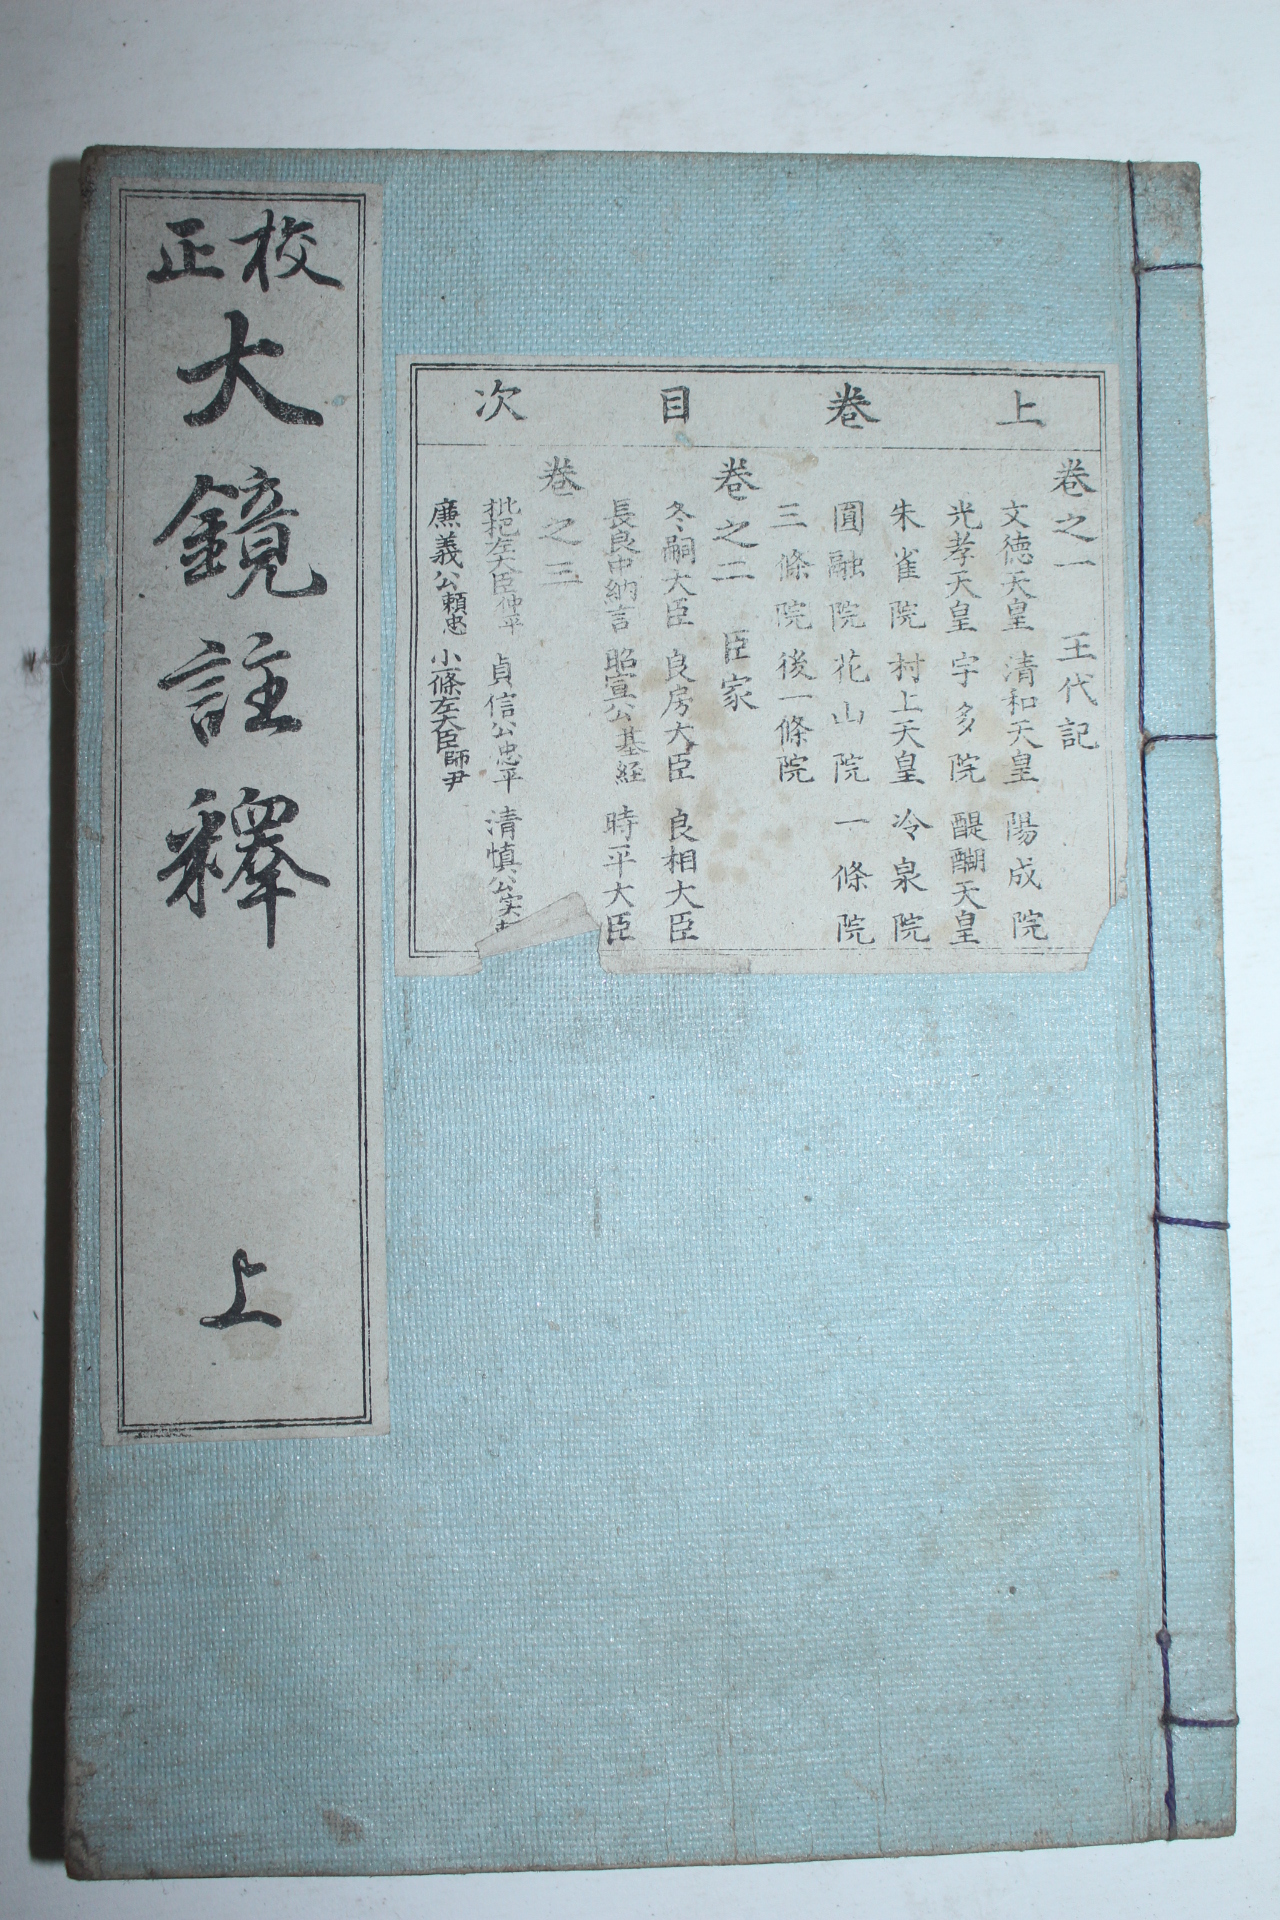 校正
大鏡註釋
上
上卷目次
卷之一 王代記
文德天皇 清和天皇 陽成院
光孝天皇 宇多院 醍醐天皇
朱雀院 村上天皇 冷泉院
圓融院 花山院 一條院
三條院 後一條院
卷之二 臣家
冬嗣大臣 良房大臣 良相大臣
長良中納言 昭宣公基経 時平大臣
卷之三
枇把左大臣仲平 貞信公忠平 清慎公実
廉義公頼忠 小一條左大臣師尹